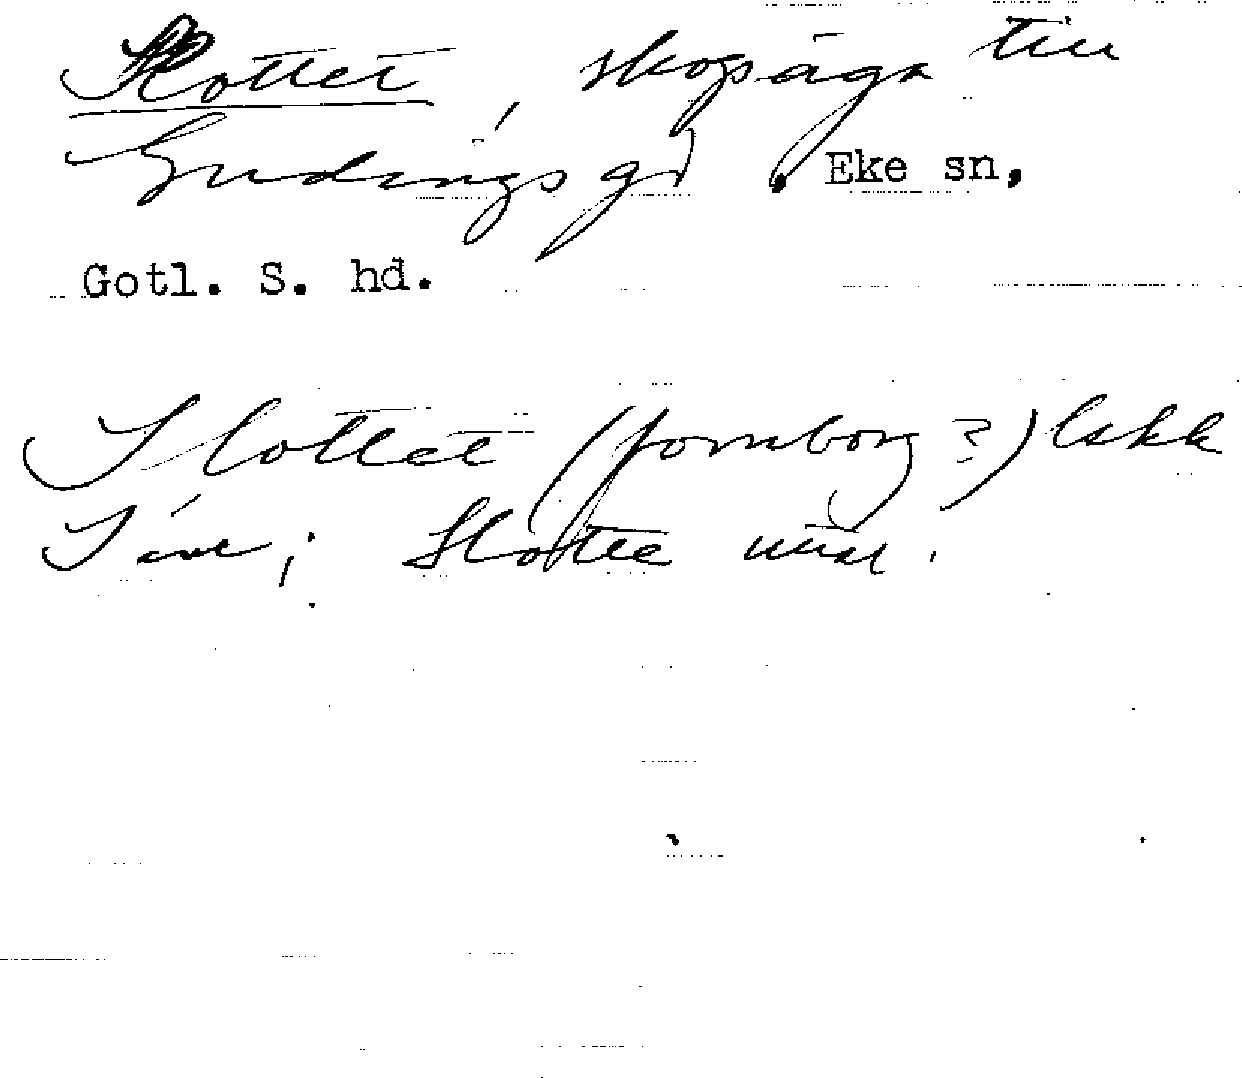 Slottet, skogsäga till
Gudings gd. Eke sn,
Gotl. S. hd.
Slottet (fornborg?)
Slotte